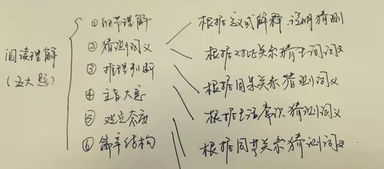 阅读理解
(五大题)
① 细节理解
② 猜测词义
③ 推理判断
④ 主旨大意
⑤ 观点态度
⑥ 篇章结构
根据定义或解释说明猜测
根据对比关系猜生词词义
根据因果关系猜测词义
根据生活常识猜测词义
根据同等关系猜测词义